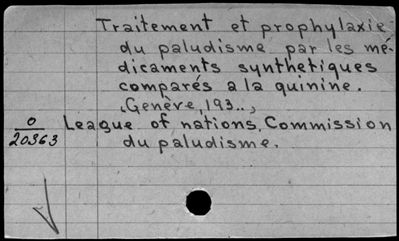 Traitement et prophylaxie
du paludisme par les mé-
dicaments synthetiques
comparés a la quinine.
Genève, 193..,
League of nations. Commission
du paludisme.
0
20363